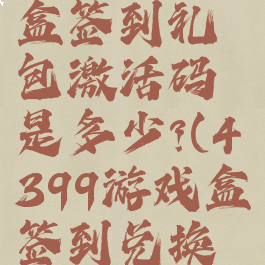 盒签到礼
包激活码
是多少?(4
399游戏盒
签到兑换